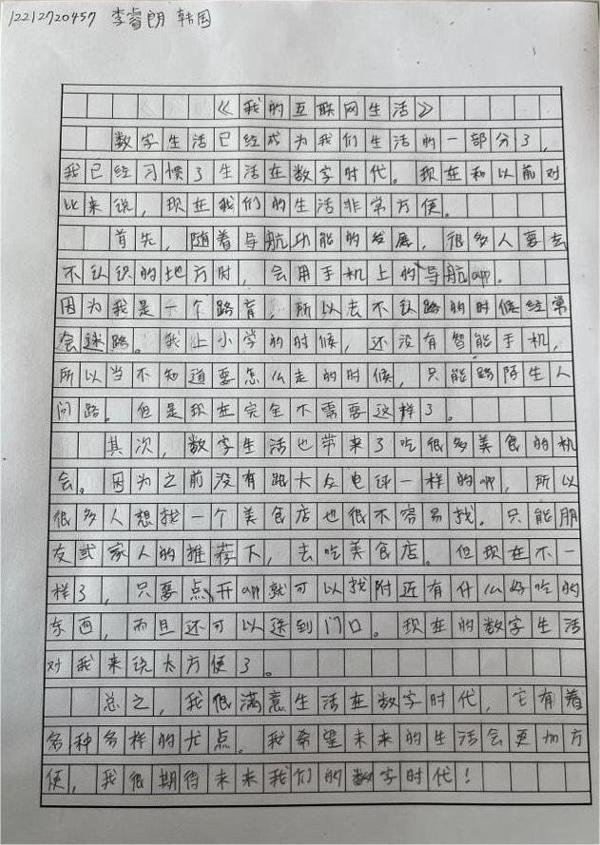 12212720457 李睿朗 韩国
《我的互联网生活》
数字生活已经成为我们生活的一部分了,
我已经习惯了生活在数字时代。现在和以前对
比来说,现在我们的生活非常方便。
首先,随着导航功能的发展,很多人要去
不认识的地方时,会用手机上的导航app。
因为我是一个路盲,所以去不认路的时候经常
会迷路。我上小学的时候,还没有智能手机,
所以当不知道要怎么走的时候,只能跟陌生人
问路。但是现在完全不需要这样了。
其次,数字生活也带来了吃很多美食的机
会。因为之前没有跟大众电评一样的app,所以
很多人想找一个美食店也很不容易找。只能朋
友或家人的推荐下,去吃美食店。但现在不一
样了,只要点开app就可以找附近有什么好吃的
东西,而且还可以送到门口。现在的数字生活
对我来说太方便了。
总之,我很满意生活在数字时代,它有着
各种各样的尤点。我希望未来的生活会更加方
便,我很期待未来我们的数字时代!